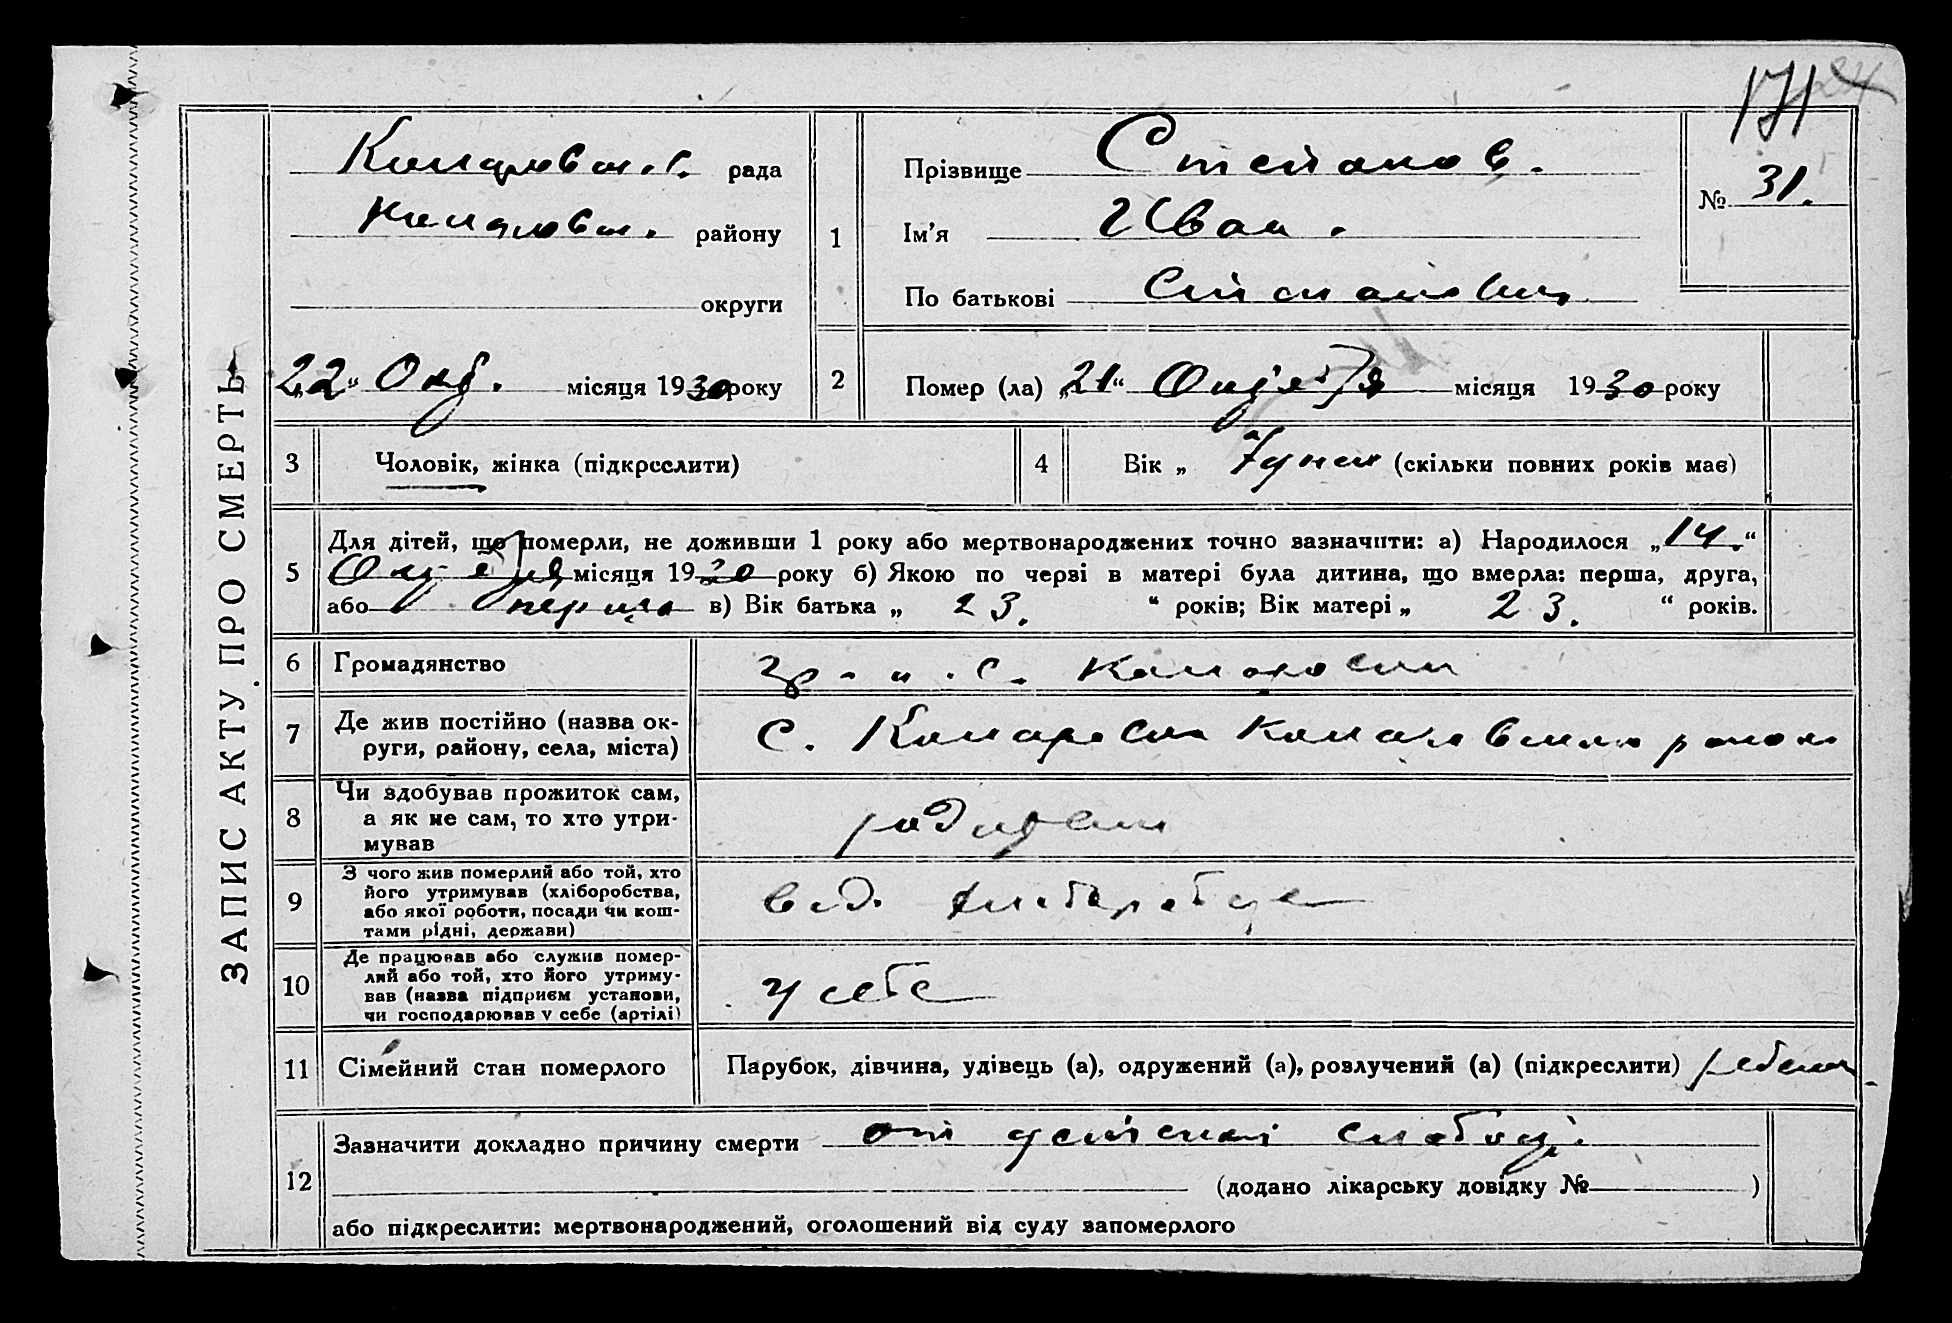 171
ЗАПИС АКТУ ПРО СМЕРТЬ
рада
району
округи
„22“ Окт. місяця 1930 року
1
Прізвище Степанов.
Ім’я Иван.
По батькові Степанович
№ 31.
2
Помер (ла) „21“ Октября місяця 1930 року
3 Чоловік, жінка (підкреслити)
4 Вік „ 7 дней (скільки повних років має)
5
Для дітей, що померли, не доживши 1 року або мертвонароджених точно зазначити: а) Народилося „14.“
Октября місяця 1930 року б) Якою по черзі в матері була дитина, що вмерла: перша, друга,
або перша в) Вік батька „ 23. “ років; Вік матері „ 23. “ років.
6 Громадянство
7 Де жив постійно (назва ок-
руги, району, села, міста)
С. Комарь
8 Чи здобував прожиток сам,
а як не сам, то хто утри-
мував
родители
9 З чого жив померлий або той, хто
його утримував (хліборобства,
або якої роботи, посади чи кош-
тами рідні, держави)
10 Де працював або служив помер-
лий або той, хто його утриму-
вав (назва підприєм установи,
чи господарював у себе (артілі)
у себе
11 Сімейний стан померлого
Парубок, дівчина, удівець (а), одружений (а), розлучений (а) (підкреслити) ребенок
12
Зазначити докладно причину смерти от детской слабост.
(додано лікарську довідку № )
або підкреслити: мертвонароджений, оголошений від суду запомерлого